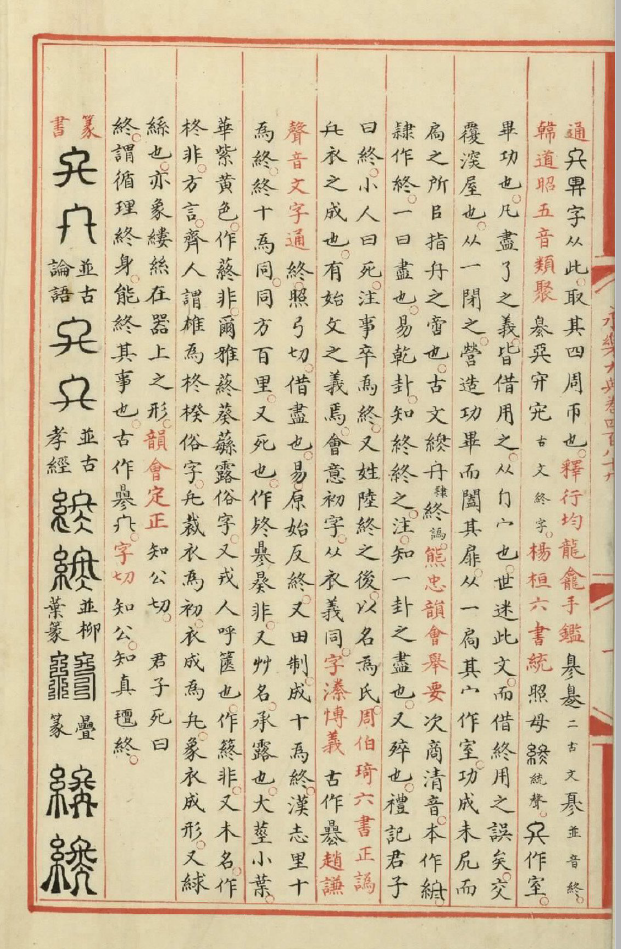 通 異字从此。取其四周帀也。釋行均龍龕手鑑 二古文 並音終。
韓道昭五音類聚 古文終字。楊桓六書統 照母 統聲。 作室
畢功也。凡盡了之義。皆借用之。从冂宀也。世迷此文而借終用之誤矣。交
覆深屋也。从一閉之。營造功畢而闔其扉。从一扃其宀作室。功成未凥而
扃之所㠯指 之 也。古文 隸終譌。熊忠韻會舉要 次商清音。本作
隷作終。一曰盡也。易乾卦。知終終之。注。知一卦之盡也。又 也。禮記君子
曰終。小人曰死。注事卒為終。又姓陸終之後。以名為氏。周伯琦六書正譌
衣之成也。有始 之義焉。會意初字。从衣義同。字潫博義 古作 。趙謙
聲音文字通 終。照弓切。借盡也。易原始反終。又田制。成十為終。漢志里十
為終。終十為同。同方百里。又死也。作 非。又艸名。承露也。大莖小葉。
華紫黄色。作蔠非。爾雅蔠葵蘩露俗字。又戎人呼篋也。作蔠非。又木名。作
柊非。方言。齊人謂椎為柊楑俗字。 裁衣為初。衣成為 。象衣成形。又絿
絲也。亦象縷絲在器上之形。韻會定正 知公切。 君子死曰
終。謂循理終身。能終其事也。古作 。字切 知公。知真邅終。
篆書 並古論語 並古孝經 並柳葉篆 疊篆